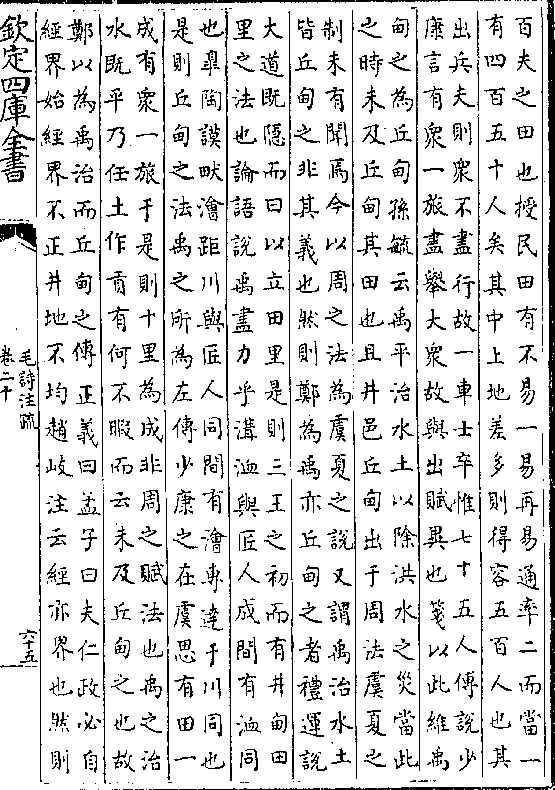 百夫之田也授民田有不易一易再易通率二而當一
有四百五十人矣其中上地差多則得容五百人也其
出兵夫則衆不盡行故一車士卒惟七十五人傳說少
康言有衆一旅盡舉大衆故與出賦異也箋以此維禹
甸之為丘甸孫毓云禹平治水土以除洪水之災當此
之時未及丘甸其田也且井邑丘甸出于周法虞夏之
制未有聞焉今以周之法為虞夏之說又謂禹治水土
皆丘甸之非其義也然則鄭為禹亦丘甸之者禮運說
大道既隱而曰以立田里是則三王之初而有井甸田
里之法也論語說禹盡力乎溝洫與匠人成間有洫同
也臯陶謨畎澮距川與匠人同間有澮專達于川同也
是則丘甸之法禹之所為左傳少康之在虞思有田一
成有衆一旅于是則十里為成非周之賦法也禹之治
水既平乃任土作貢有何不暇而云未及丘甸之也故
鄭以為禹治而丘甸之傳正義曰孟子曰夫仁政必自
經界始經界不正井地不均趙岐注云經亦界也然則
欽定四庫全書
毛詩注疏
卷二十
六十五